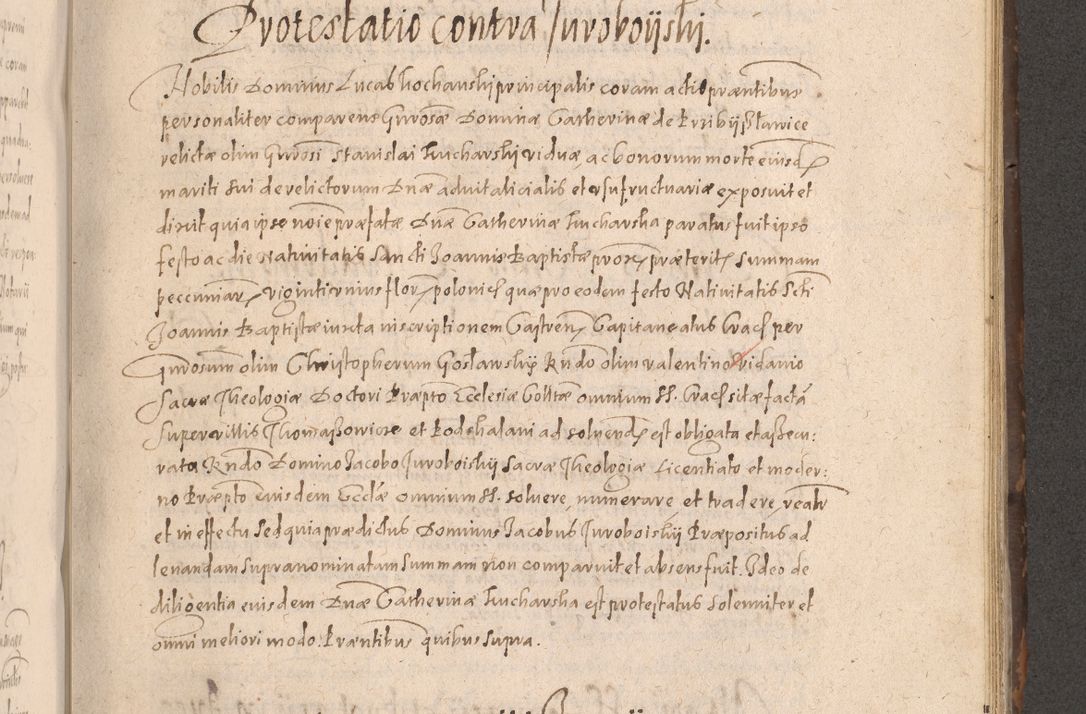 Protestatio contra Iuroboijskij.
Nobilis Dominus Lucas Kochanskij principalis coram actis præntibus
personaliter comparens Gnrosæ Dominæ Catherinæ de Przibijsławice
relictæ olim Gnrosi Stanislai Kucharskij viduæ, ac bonorum morte eiusd
mariti sui derelictorum Dnæ advitalicialis et usufructuariæ exposuit et
dixit quia ipse noie præfatæ Dnæ Catherinæ Kucharska paratus fuit ipso
festo ac die Nativitatis Sancti Joannis Baptistæ prox præterit summam
peccuniar viginti unius flor polonicl quæ pro eodem festo Nativitatis Scti
Joannis Baptistæ iuxta inscriptionem Castren Capitaneatus Crac per
Gnrosum olim Christopherum Gosławskij Rndo olim Valentino Vidavio
Sacræ Theologiæ Doctori Præpto Ecclesiæ Colltæ omnium SS. Crac sitæ factā
super villis Thomaszowicze et Podskalani ad solvend est obligata et assecu:
rata Rndo Domino Jacobo Iuroboiskij Sacræ Theologiæ Licentiato et moder:
no Præpto eiusdem Eccliæ omnium SS. solvere, numerare, et tradere, realr
et in effectu Sed quia prædictus Dominus Jacobus Iuroboiskij Præpositus ad
levandam supranominatam summam non comparuit et absens fuit. Ideo de
diligentia eiusdem Dnæ Catherinæ Kucharska est protestatus solenniter et
omni meliori modo. Præntibus quibus supra.